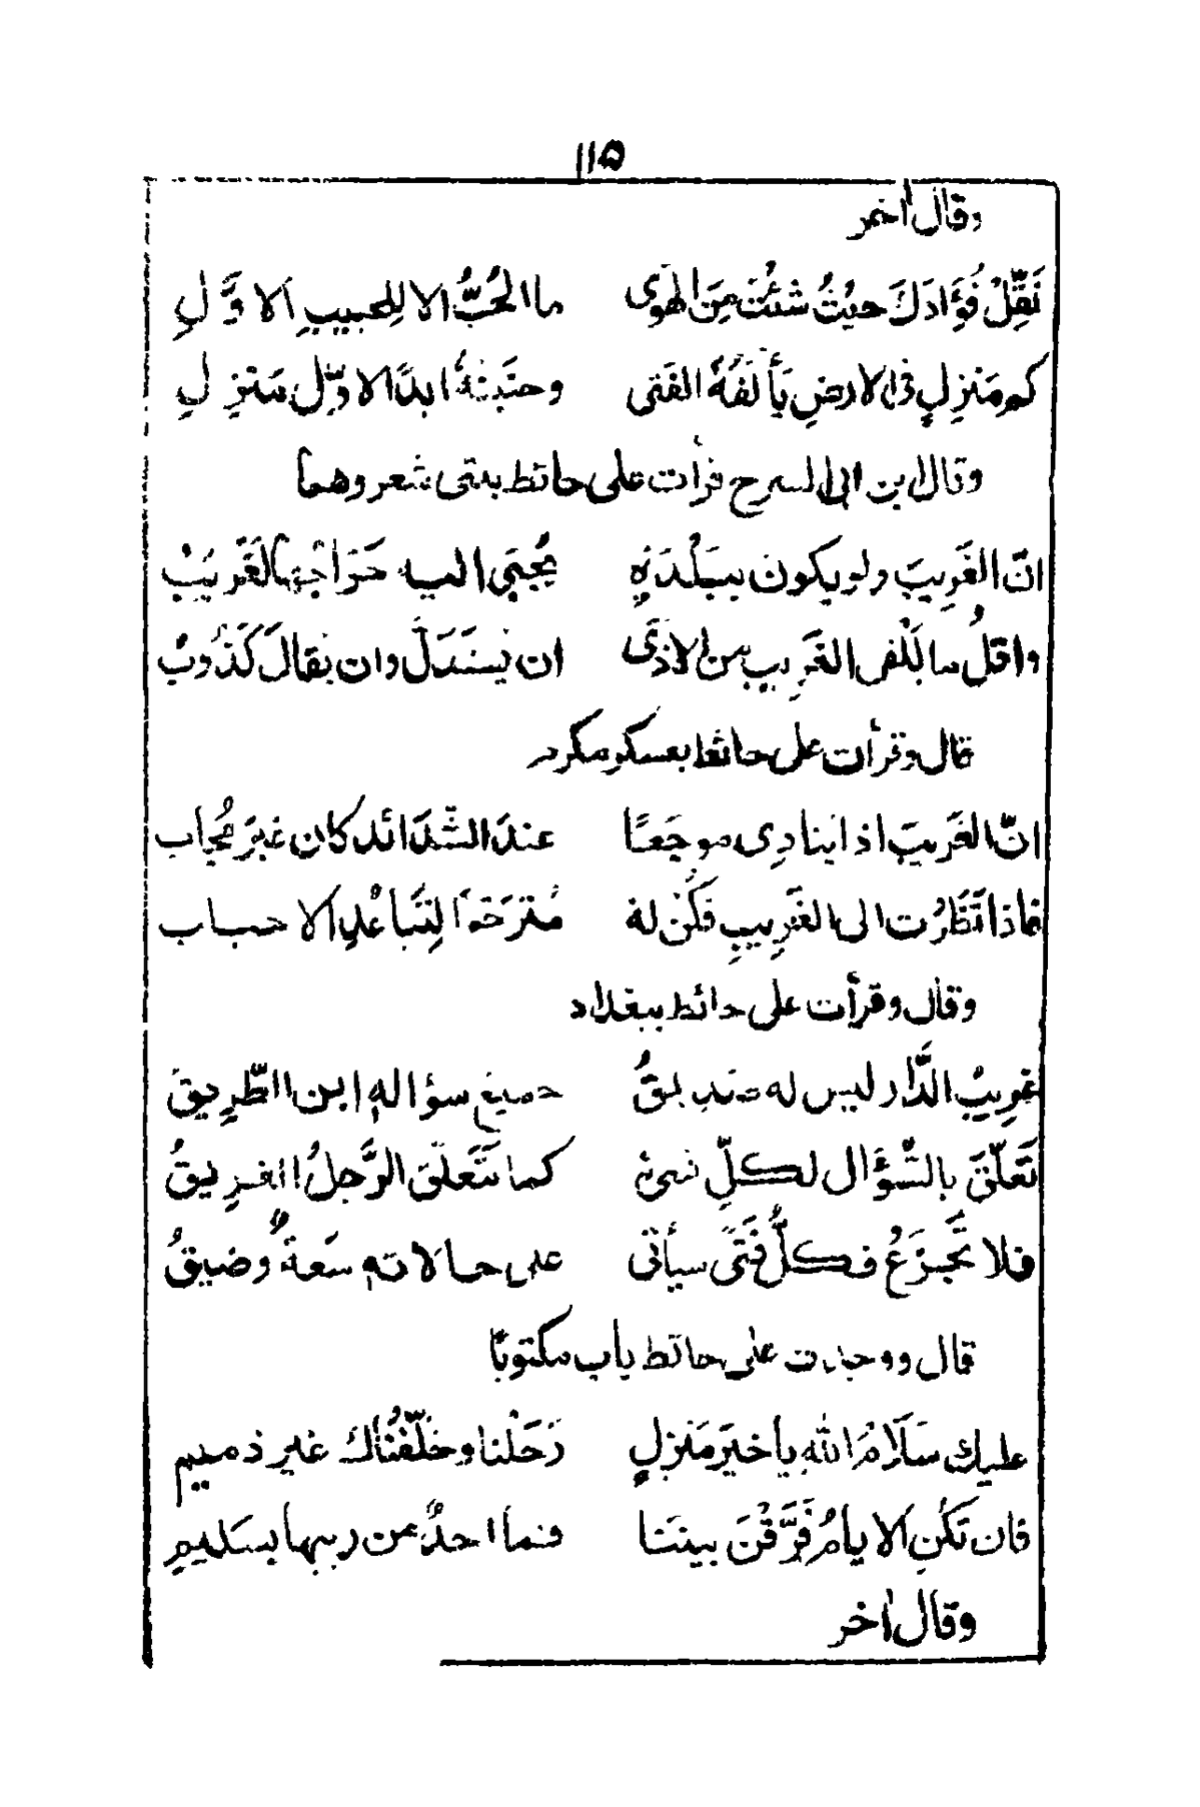 ١١٥
وقال اخر
نَقِّلْ فُؤَادَكَ حيْثُ شئتَ مِنَ الهوٰى ما الحُبُّ الا للحبيبِ الاوَّلِ
كم مَنزِلٍ فى الارضِ يَألَفُهُ الفَتى وحنَينُهُ ابدًا لاوّلِ مَنزِلِ
وقال ابن ابى السرح قرأت على حائط بيتى شعر وهما
انّ الغَرِيبَ ولو يكون ببَلْدَةٍ يُجبٰى اليه خَرَاجُها لَغَرِيبُ
واقلُ ما يَلْقى الغَرِيب من الاذٰى ان يُستَذَلَّ وان يقالَ كَذُوبُ
قال وقرأت على حائط بعسكر مكرم
انّ الغَرِيبَ اذا ينادِى موجَعًا عندَ الشَّدَائد كان غيرَ مُجاب
فاذا نَظَرْت الى الغَرِيبِ فكُنْ له مُترَحّمًا لِتَبَاعُدِ الاحباب
وقال وقرأت على حائط ببغداد
غرِيبُ الدَّار ليس له صَدِيقُ جميع سؤاله اين الطّرِيقُ
تَعَلّقَ بالسُّؤال لكلِّ شىء كما تَتَعَلّقَ الرَّجلُ الغرِيقُ
فلا تَجزَعُ فكلُّ فَتًى سيأتى على حالاته سَعةٌ وضيقُ
قال ووجدت على حائط باب مكتوبًا
عليك سَلَامُ الله يا خيرَ مَنزلٍ رَحَلْنا وخَلّفْنُاك غير ذميم
فان تَكُنِ الايامُ فَرَّقْنَ بينَنا فما احدٌ من ريبها بسَليمِ
وقال اخر